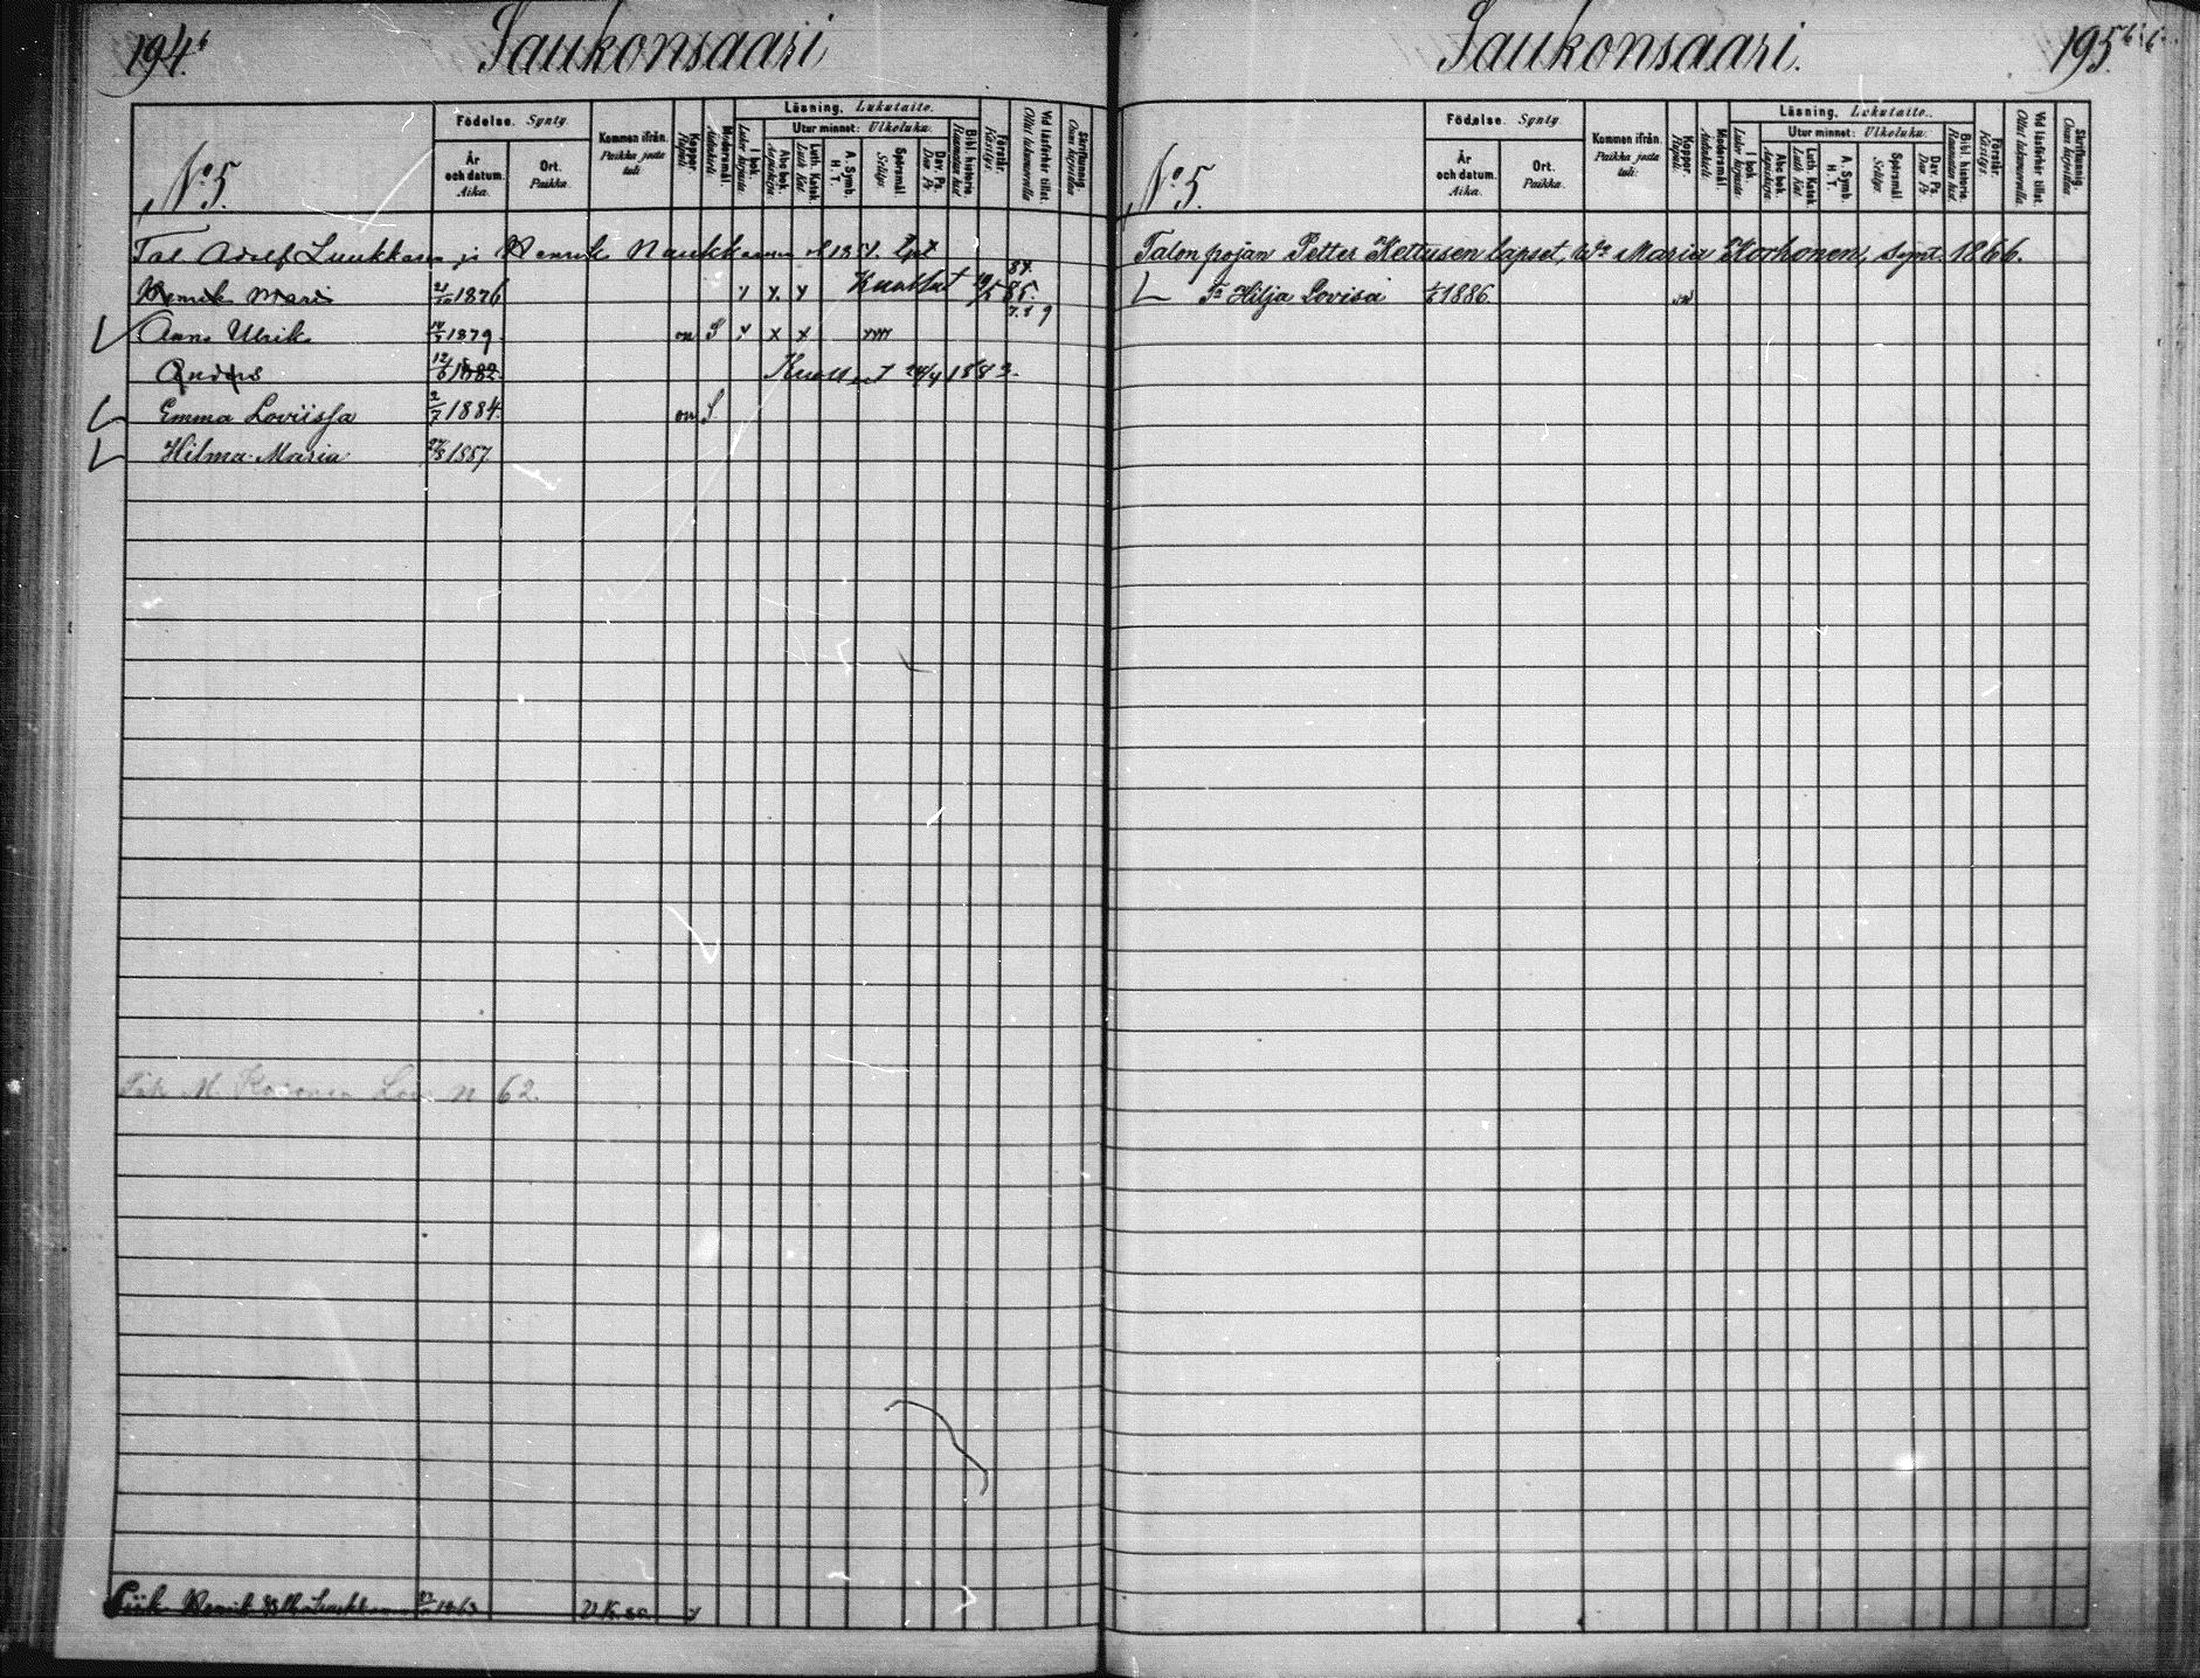 194.
Saukonsaari
No 5.
Födelse. Synty.
År och datum. Aika.
Ort. Paikka.
Kommen ifrån. Paikka josta tuli
Koppor. Rupuli.
Modersmål. Äidinkieli
Läsning. Lukutaito.
I bok. Lukee kirjasta.
Utur minnet: Ulkoluku.
Abc bok. Aapiskirja.
Luth. Katek. Luth Kat.
A. Symb. H. T.
Spörsmål. Selitys.
Dav. Ps. Dav. Ps.
Bibl. historie. Raamatun hist.
Förstår. Käsitys.
Vid läsförhör tillst. Ollut lukuvuorolla
Skriftkunnig. Osaa kirjoittaa
Tal Adolf Luukkanen ja Henrik Naukkarinen lpt
Henrik Mari 1876 y x. y Kuollut 19/5 85.
84.
Anna Ulrik 1879. on S y x x
Anders 12/6 1882 Kuollut 24/4 1883.
Emma Loviissa 2/7 1884. on S.
Hilma Maria 1887
M. n 62.
Henrik 1863 y
195.
Saukonsaari.
No 5.
Födelse. Synty.
År och datum. Aika.
Ort. Paikka.
Kommen ifrån. Paikka josta tuli:
Koppor. Rupuli.
Modersmål. Äidinkieli
Läsning. Lukutaito.
I bok. Lukee kirjasta.
Utur minnet: Ulkoluku.
Abc bok. Aapiskirja.
Luth. Katek. Luth Kat.
A. Symb. H. T.
Spörsmål. Selitys
Dav. Ps. Dav. Ps
Bibl. historie. Raamatun hist.
Förstår. Käsitys.
Vid läsförhör tillst. Ollut lukuvuorolla.
Skriftkunnig. Osaa kirjoittaa
Talon pojan Petter Kettusen lapset, Maria Korhonen, synt. 1866.
Hilja Lovisa 1886